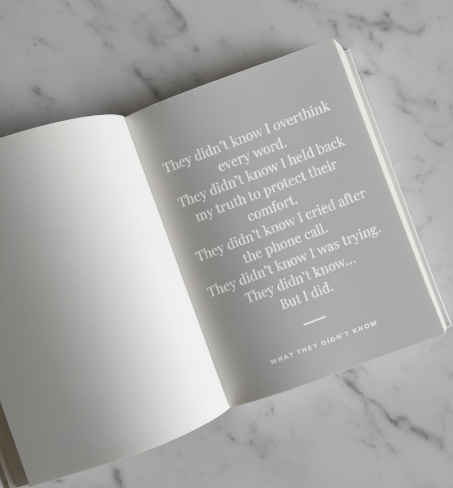 They didn't know I overthink
every word.
They didn't know I held back
my truth to protect their
comfort.
They didn't know I cried after
the phone call.
They didn't know I was trying.
They didn't know...
But I did.
WHAT THEY DIDN'T KNOW